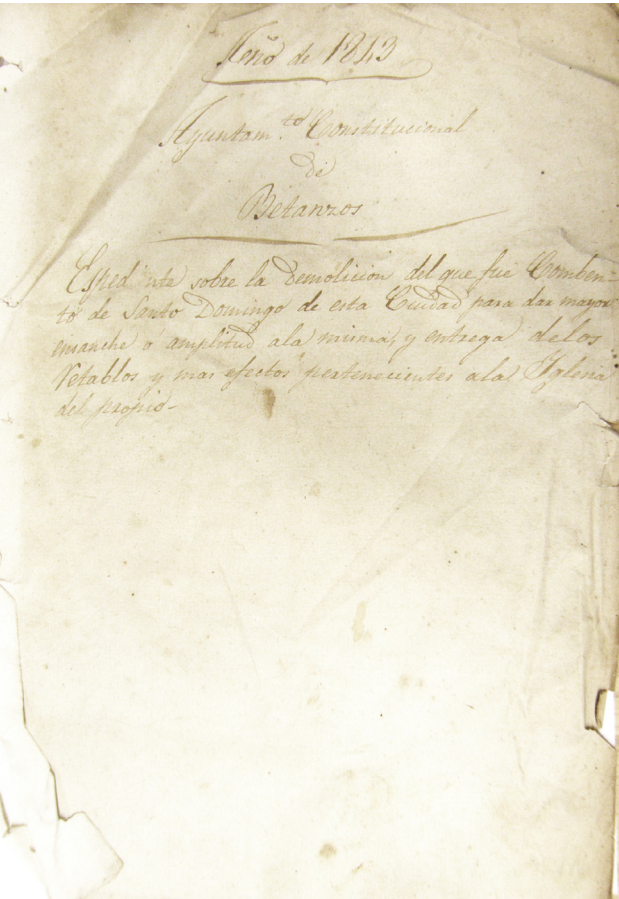 Año de 1843
Ayuntam.to Constitucional
de
Betanzos
Espediente sobre la demolicion del que fué Comben-
to de Santo Domingo de esta Ciudad para dar mayor
ensanche ó amplitud ala misma, y entrega delos
Retablos y mas efectos pertenecientes ala Iglesia
del propio-